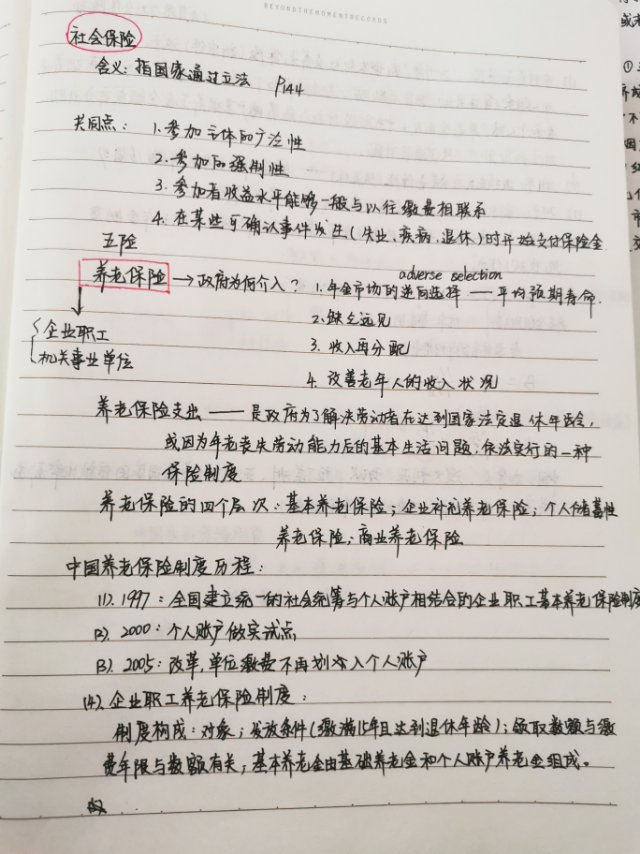 BEYONDTHEMOMENTRECORDS
社会保险
含义：指国家通过立法 P144
共同点： 1.参加主体的广泛性
2.参加的强制性
3.参加者收益水平能够一般与以往缴费相联系
4.在某些可确认事件发生(失业、疾病、退休)时开始支付保险金
五险
adverse selection
养老保险→政府为何介入？ 1.年金市场的逆向选择——平均预期寿命.
企业职工 2.缺乏远见
机关事业单位 3.收入再分配
4.改善老年人的收入状况
养老保险支出——是政府为了解决劳动者在达到国家法定退休年龄，
或因为年老丧失劳动能力后的基本生活问题，依法实行的一种
保险制度
养老保险的四个层次：基本养老保险；企业补充养老保险；个人储蓄性
养老保险；商业养老保险
中国养老保险制度历程：
(1).1997：全国建立统一的社会统筹与个人账户相结合的企业职工基本养老保险制度
(2).2000：个人账户做实试点
(3).2005：改革,单位缴费不再划入个人账户
(4).企业职工养老保险制度：
制度构成：对象；发放条件(缴满15年且达到退休年龄)；领取数额与缴
费年限与数额有关；基本养老金由基础养老金和个人账户养老金组成。